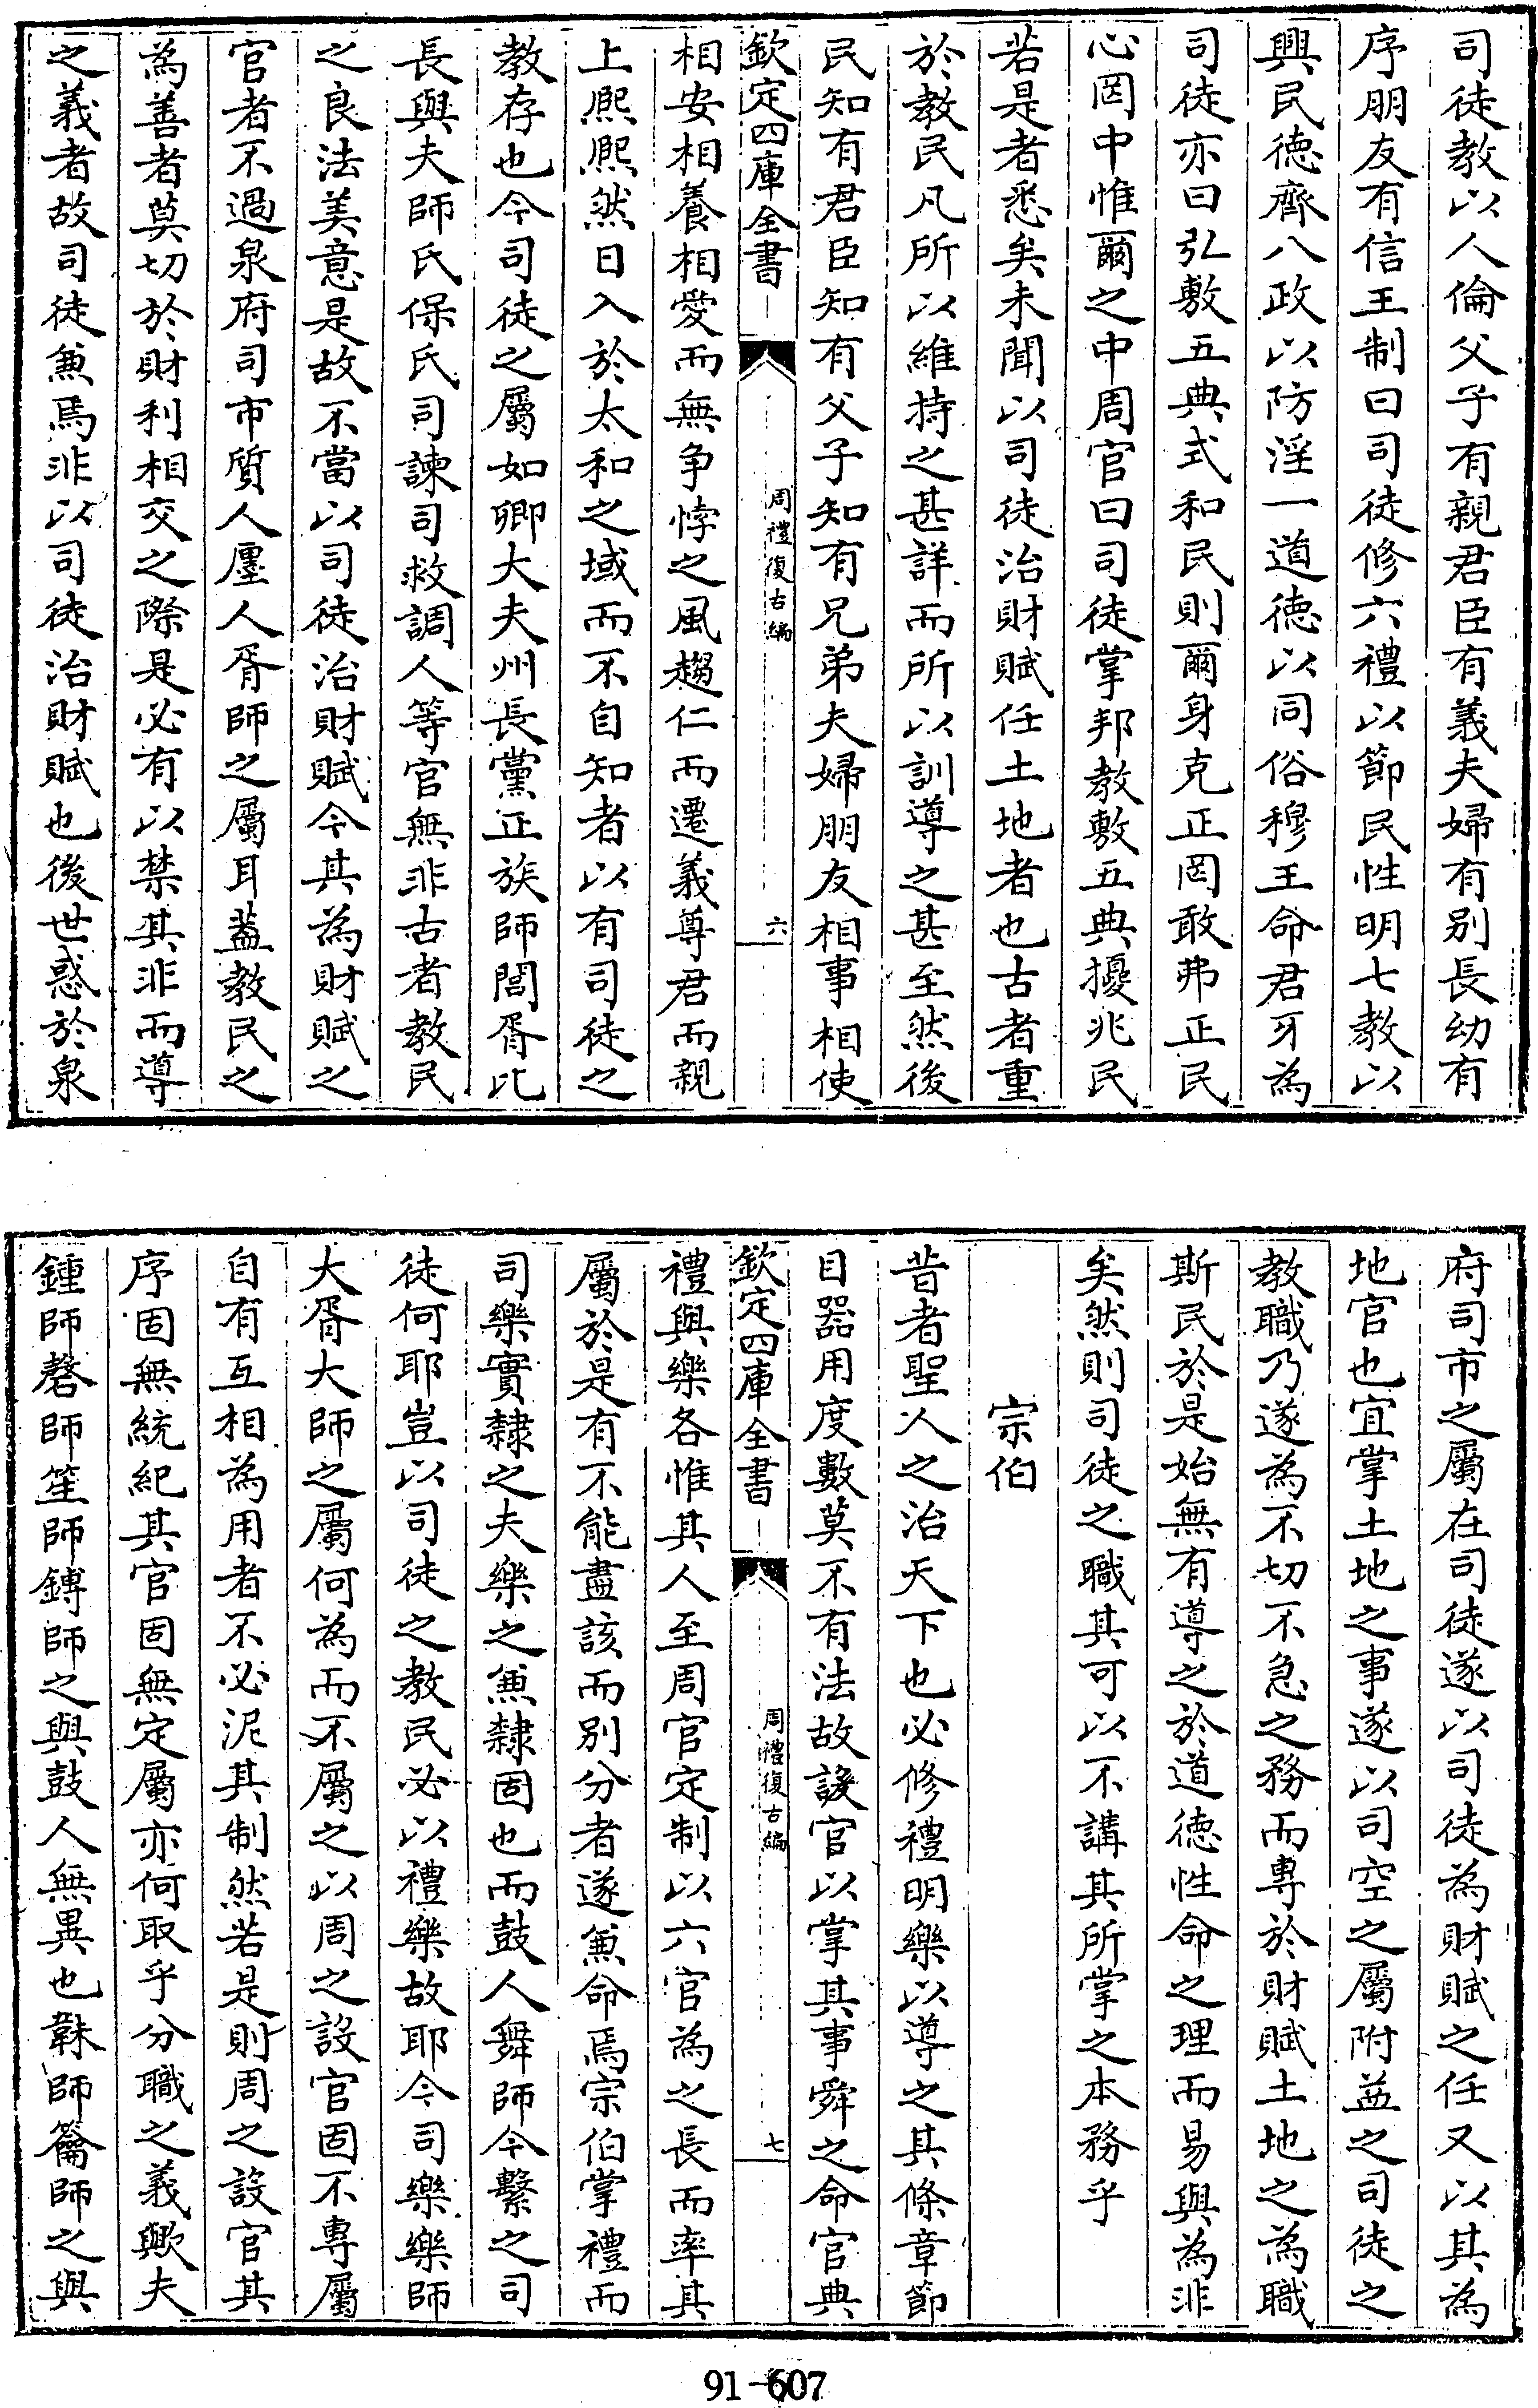 司徒教以人倫父子有親君臣有義夫婦有别長幼有
序朋友有信王制曰司徒修六禮以節民性明七教以
興民德齊八政以防淫一道德以同俗穆王命君牙為
司徒亦曰弘敷五典式和民則爾身克正罔敢弗正民
心罔中惟爾之中周官曰司徒掌邦教敷五典擾兆民
若是者悉矣未聞以司徒治財賦任土地者也古者重
於教民凡所以維持之甚詳而所以訓導之甚至然後
民知有君臣知有父子知有兄弟夫婦朋友相事相使
欽定四庫全書
周禮復古編
六
相安相養相愛而無爭悖之風趨仁而遷義尊君而親
上熈熈然日入於太和之域而不自知者以有司徒之
教存也今司徒之屬如鄉大夫州長黨正族師閭胥比
長與夫師氏保氏司諫司救調人等官無非古者教民
之良法美意是故不當以司徒治財賦今其為財賦之
官者不過泉府司市質人廛人胥師之屬耳蓋教民之
為善者莫切於財利相交之際是必有以禁其非而導
之義者故司徒兼焉非以司徒治財賦也後世惑於泉
府司市之屬在司徒遂以司徒為財賦之任又以其為
地官也宜掌土地之事遂以司空之屬附益之司徒之
教職乃遂為不切不急之務而專於財賦土地之為職
斯民於是始無有導之於道德性命之理而易與為非
矣然則司徒之職其可以不講其所掌之本務乎
宗伯
昔者聖人之治天下也必修禮明樂以導之其條章節
目器用度數莫不有法故設官以掌其事舜之命官典
欽定四庫全書
周禮復古編
七
禮與樂各惟其人至周官定制以六官為之長而率其
屬於是有不能盡該而别分者遂兼命焉宗伯掌禮而
司樂實隸之夫樂之兼隸固也而鼓人舞師今繫之司
徒何耶豈以司徒之教民必以禮樂故耶今司樂樂師
大胥大師之屬何為而不屬之以周之設官固不專屬
自有互相為用者不必泥其制然若是則周之設官其
序固無統紀其官固無定屬亦何取乎分職之義歟夫
鍾師磬師笙師鎛師之與鼓人無異也韎師籥師之與
91-607